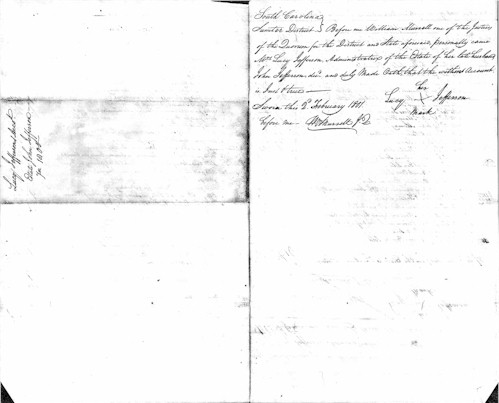 South Carolina
Sumter District } Before me William Murrell one of the Justices
of the Quorum for the District and State aforesaid, personally came
Mrs Lucy Jefferson Administratrix of the Estate of her late husband
John Jefferson decd and duly Made Oath, that the within Account
is Just & true
Sworn this 2d February 1811
before me Wm Murrell J Q
her
Lucy X Jefferson
mark
Lucy Jefferson
Estate John Jefferson